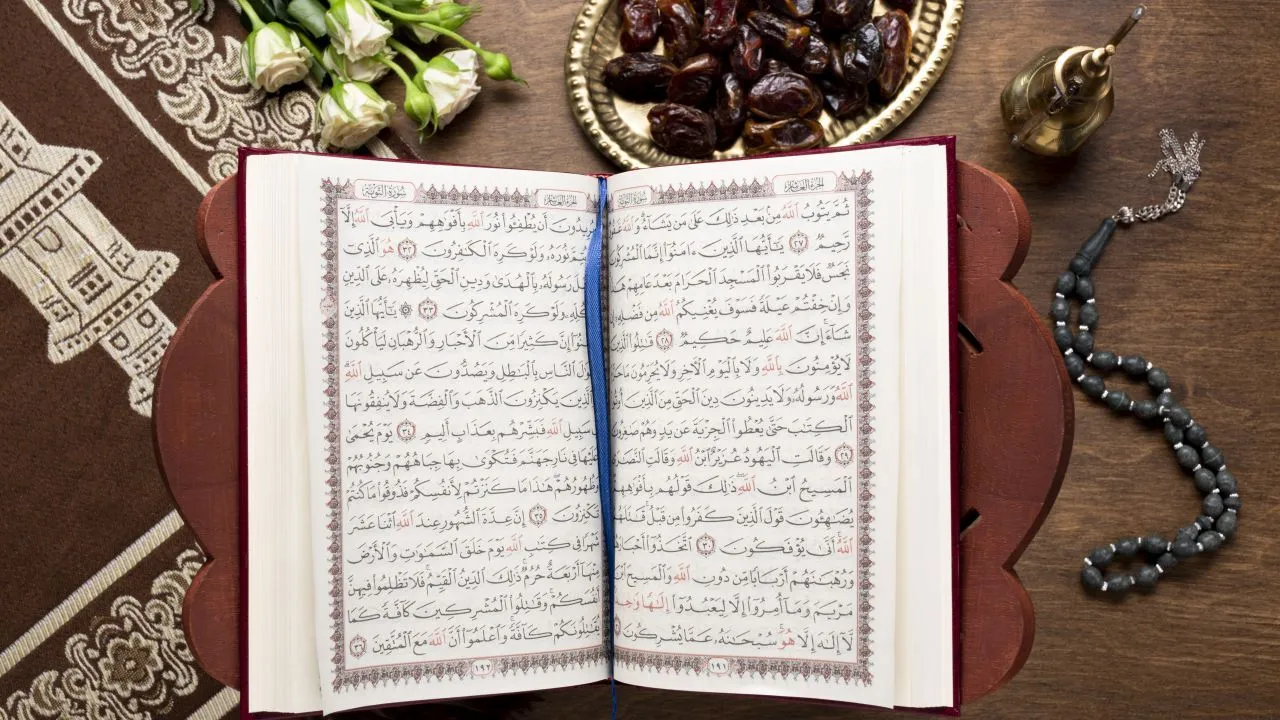 الجزء العاشر سورة التوبة
ثُمَّ يَتُوبُ ٱللَّهُ مِنۢ بَعْدِ ذَٰلِكَ عَلَىٰ مَن يَشَآءُ وَٱللَّهُ
رَّحِيمٌ ٢٧ يَٰٓأَيُّهَا ٱلَّذِينَ ءَامَنُوٓا۟ إِنَّمَا
نَجَسٌ فَلَا يَقْرَبُوا۟ ٱلْمَسْجِدَ ٱلْحَرَامَ بَعْدَ عَامِهِمْ
وَإِنْ خِفْتُمْ عَيْلَةً فَسَوْفَ يُغْنِيكُمُ ٱللَّهُ مِن فَضْلِهِۦٓ
شَآءَ إِنَّ ٱللَّهَ عَلِيمٌ حَكِيمٌ ٢٨ قَٰتِلُوا۟ ٱلَّذِينَ
لَا يُؤْمِنُونَ بِٱللَّهِ وَلَا بِٱلْيَوْمِ ٱلْءَاخِرِ وَلَا يُحَرِّمُونَ مَا
ٱللَّهُ وَرَسُولُهُۥ وَلَا يَدِينُونَ دِينَ ٱلْحَقِّ مِنَ ٱلَّذِينَ
ٱلْكِتَٰبَ حَتَّىٰ يُعْطُوا۟ ٱلْجِزْيَةَ عَن يَدٍ وَهُمْ صَٰغِرُونَ
٢٩ وَقَالَتِ ٱلْيَهُودُ عُزَيْرٌ ٱبْنُ ٱللَّهِ وَقَالَتِ
ٱلْمَسِيحُ ٱبْنُ ٱللَّهِ ذَٰلِكَ قَوْلُهُم بِأَفْوَٰهِهِمْ
يُضَٰهِـُٔونَ قَوْلَ ٱلَّذِينَ كَفَرُوا۟ مِن قَبْلُ
ٱللَّهُ أَنَّىٰ يُؤْفَكُونَ ٣٠ ٱتَّخَذُوٓا۟
وَرُهْبَٰنَهُمْ أَرْبَابًا مِّن دُونِ ٱللَّهِ وَٱلْمَسِيحَ
مَرْيَمَ وَمَآ أُمِرُوٓا۟ إِلَّا لِيَعْبُدُوٓا۟ إِلَٰهًا
لَّآ إِلَٰهَ إِلَّا هُوَ سُبْحَٰنَهُۥ عَمَّا يُشْرِكُونَ
١٩١
الجزء العاشر سورة التوبة
أَن يُطْفِـُٔوا۟ نُورَ ٱللَّهِ بِأَفْوَٰهِهِمْ وَيَأْبَى ٱللَّهُ إِلَّآ
نُورَهُۥ وَلَوْ كَرِهَ ٱلْكَٰفِرُونَ ٣٢ هُوَ ٱلَّذِىٓ
رَسُولَهُۥ بِٱلْهُدَىٰ وَدِينِ ٱلْحَقِّ لِيُظْهِرَهُۥ عَلَى ٱلدِّينِ
وَلَوْ كَرِهَ ٱلْمُشْرِكُونَ ٣٣ ۞ يَٰٓأَيُّهَا ٱلَّذِينَ
إِنَّ كَثِيرًا مِّنَ ٱلْأَحْبَارِ وَٱلرُّهْبَانِ لَيَأْكُلُونَ
ٱلنَّاسِ بِٱلْبَٰطِلِ وَيَصُدُّونَ عَن سَبِيلِ ٱللَّهِ
يَكْنِزُونَ ٱلذَّهَبَ وَٱلْفِضَّةَ وَلَا يُنفِقُونَهَا
سَبِيلِ ٱللَّهِ فَبَشِّرْهُم بِعَذَابٍ أَلِيمٍ ٣٤ يَوْمَ يُحْمَىٰ
عَلَيْهَا فِى نَارِ جَهَنَّمَ فَتُكْوَىٰ بِهَا جِبَاهُهُمْ وَجُنُوبُهُمْ
وَظُهُورُهُمْ هَٰذَا مَا كَنَزْتُمْ لِأَنفُسِكُمْ فَذُوقُوا۟ مَا كُنتُمْ
تَكْنِزُونَ ٣٥ إِنَّ عِدَّةَ ٱلشُّهُورِ عِندَ ٱللَّهِ ٱثْنَا عَشَرَ
شَهْرًا فِى كِتَٰبِ ٱللَّهِ يَوْمَ خَلَقَ ٱلسَّمَٰوَٰتِ وَٱلْأَرْضَ
مِنْهَآ أَرْبَعَةٌ حُرُمٌ ذَٰلِكَ ٱلدِّينُ ٱلْقَيِّمُ فَلَا تَظْلِمُوا۟ فِيهِنَّ
أَنفُسَكُمْ وَقَٰتِلُوا۟ ٱلْمُشْرِكِينَ كَآفَّةً كَمَا
يُقَٰتِلُونَكُمْ كَآفَّةً وَٱعْلَمُوٓا۟ أَنَّ ٱللَّهَ مَعَ ٱلْمُتَّقِينَ ٣٦
١٩٢